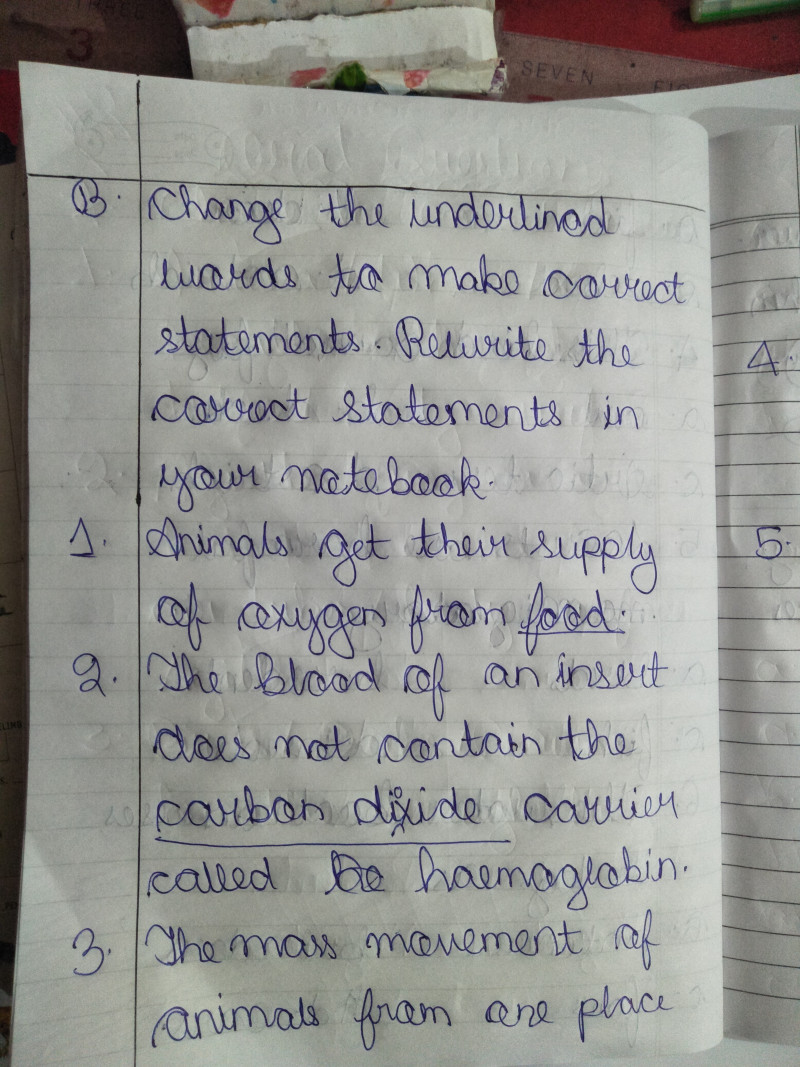 THREE
3
SEVEN
B. Change the underlined
words to make correct
statements. Rewrite the
correct statements in
your notebook.
1. Animals get their supply
of oxygen from food.
2. The blood of an insert
does not contain the
carbon dioxide carrier
called haemoglobin.
3. The mass movement of
animals from one place
4.
5.